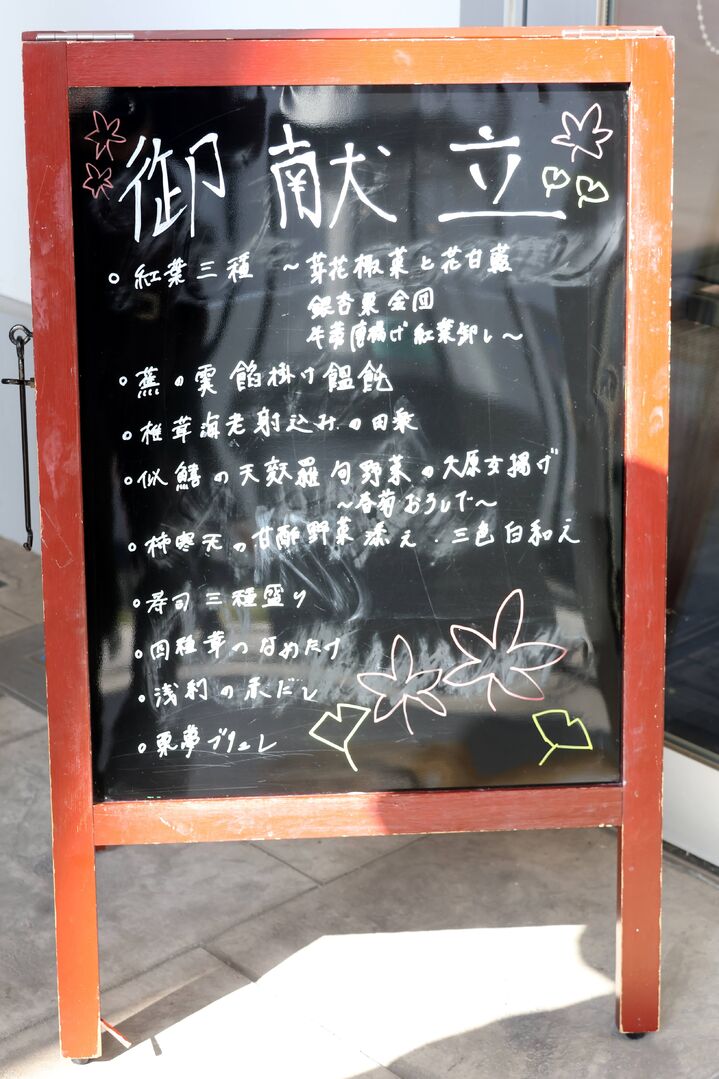 御献立
○紅葉三種 ～芽花椰菜と花甘藍
銀杏栗金団
牛蒡唐揚げ紅葉卸し～
○蕪の雲 餡掛け饂飩
○椎茸海老射込みの田楽
○似鱚の天麩羅 旬野菜の大原女揚げ
～春菊おろしで～
○柿寒天の甘酢野菜添え・三色白和え
○寿司三種盛り
○四種茸のなめたけ
○浅利の赤だし
○栗夢ブリュレ